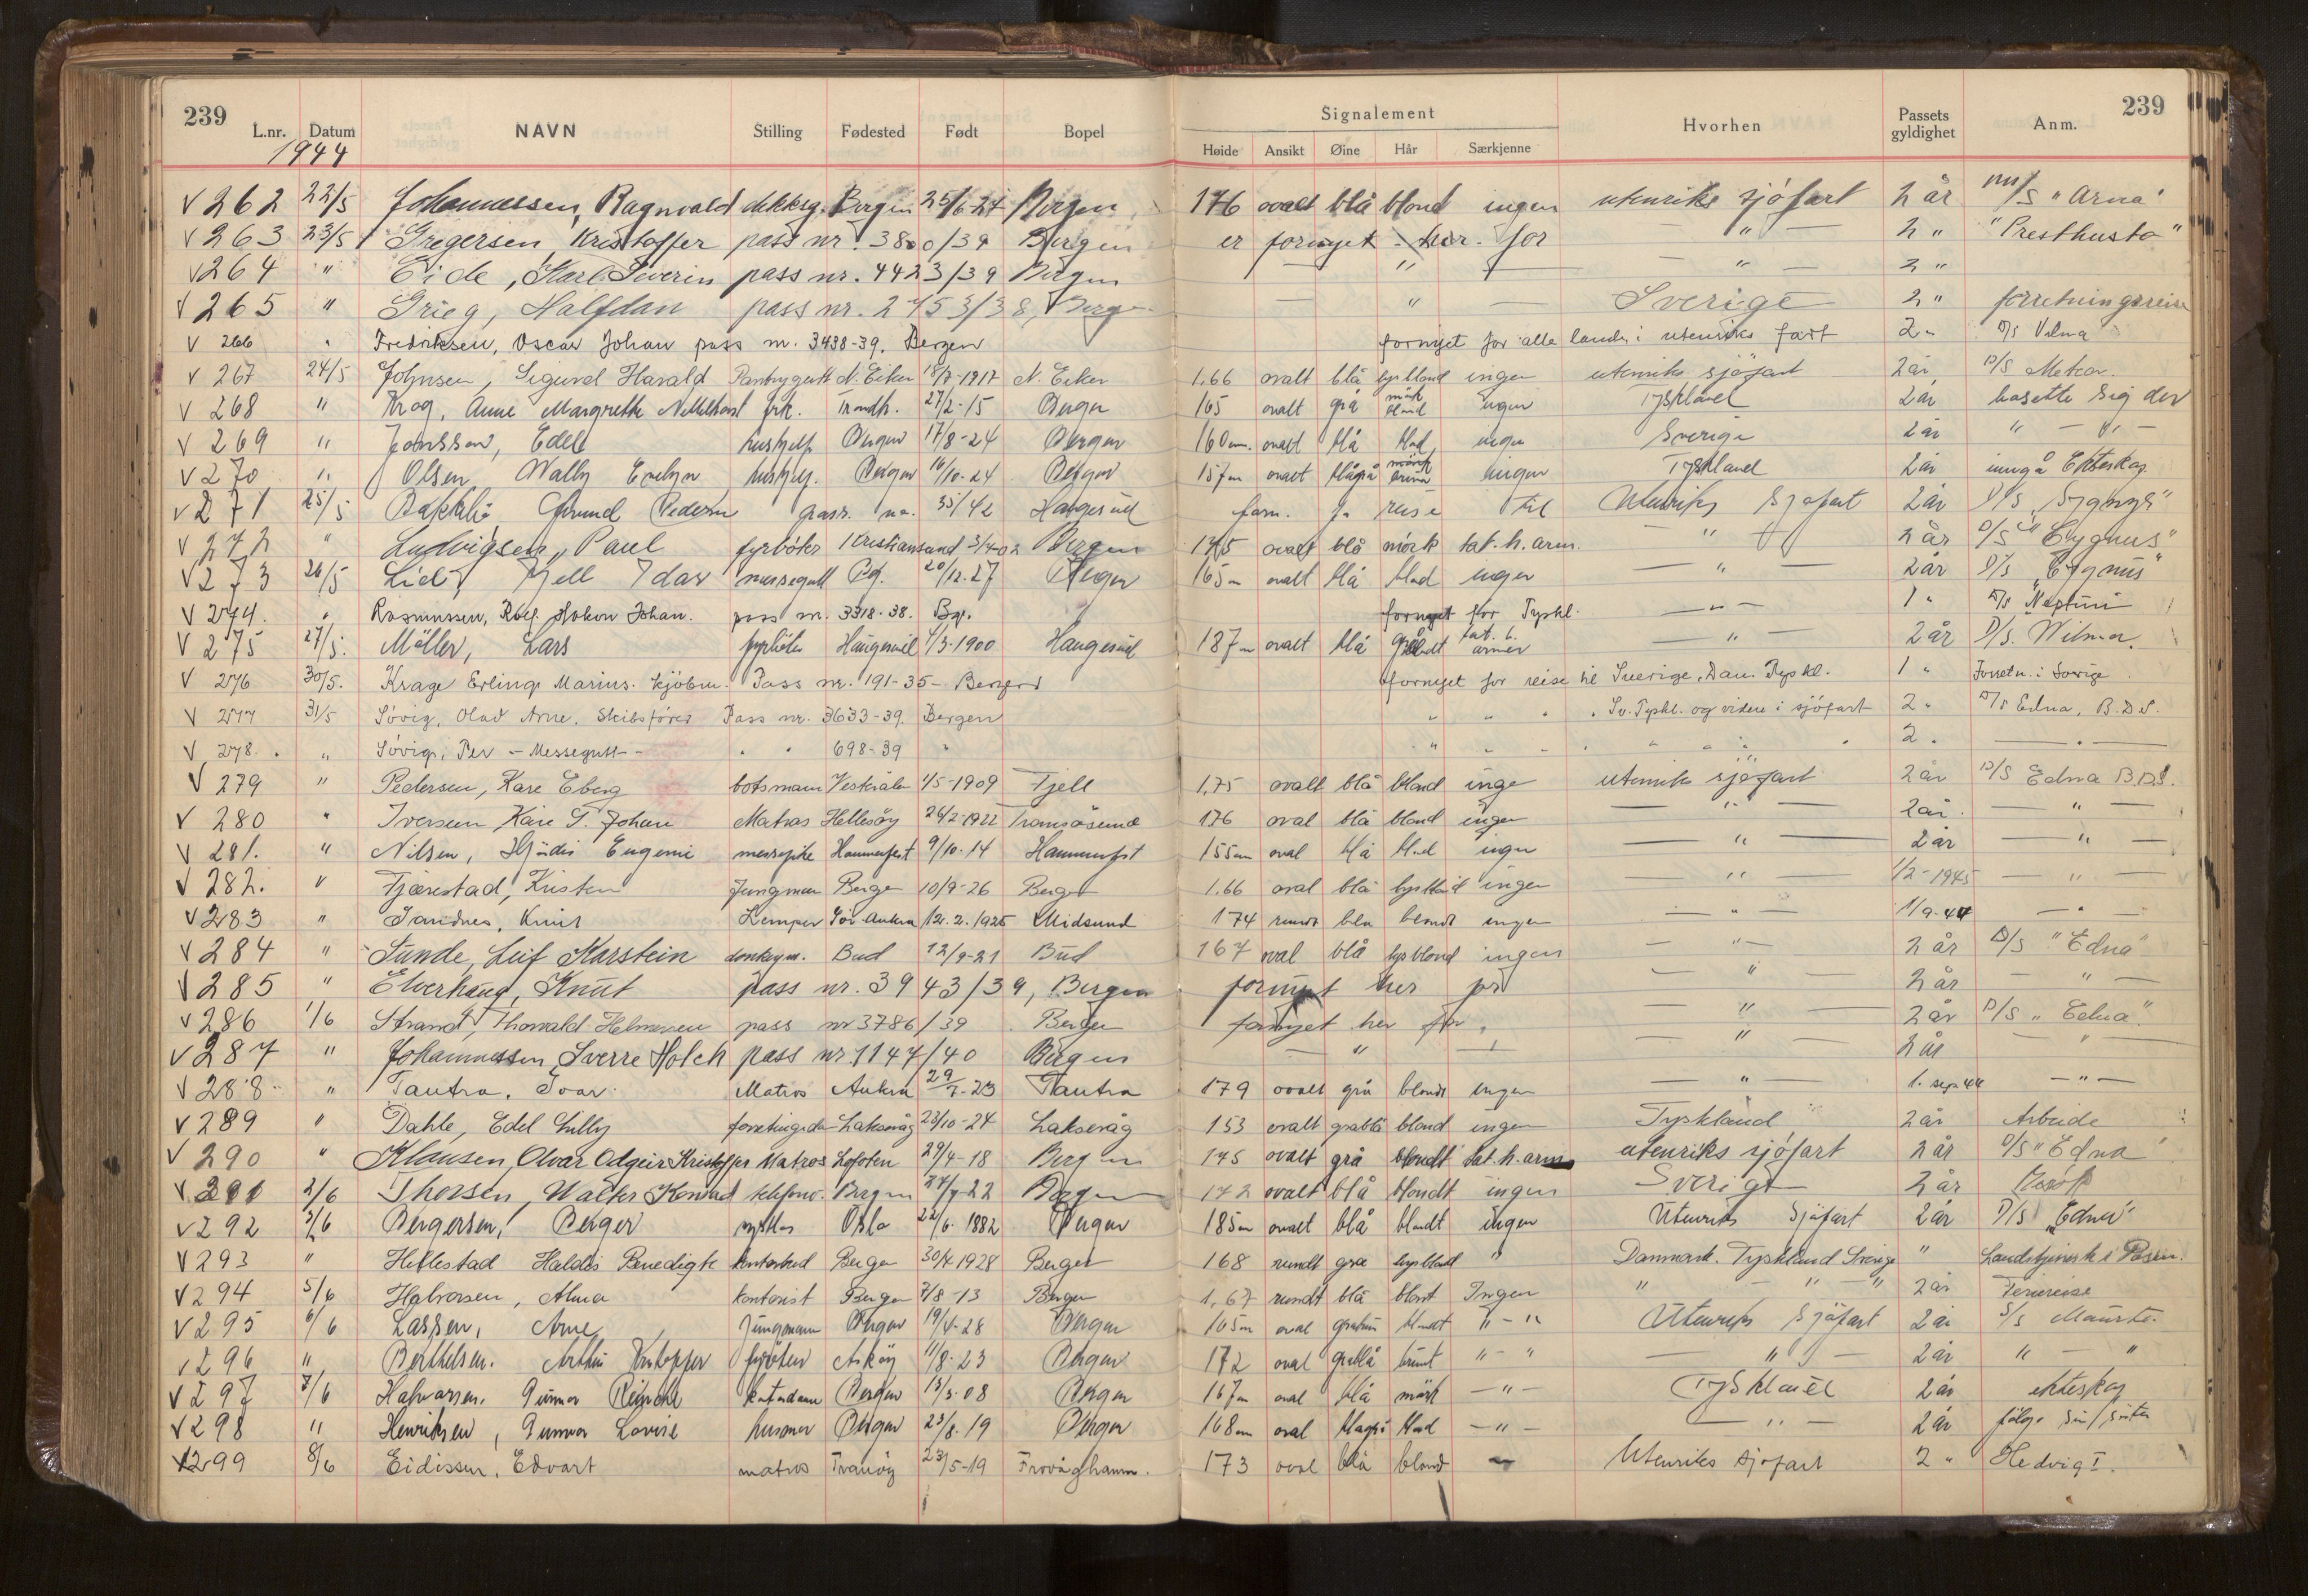 239
239
L.nr. Datum NAVN Stilling Fødested Født Bopel
Signalement
Høide Ansikt Øine Hår Særkjenne
Hvorhen Passets gyldighet Anm.
1944
V 262 22/5 Johannessen, Ragnvald dekksg. Bergen 25/6-24 Bergen 176 ovalt blå blond ingen utenriks sjöfart 2 år M/S "Arna"
V 263 23/5 Gregersen, Kristoffer pass nr. 3800/39 Bergen er fornyet her for — " — 2 " "Presthusta"
V 264 " Eide, Karl Severin pass nr. 4423/39 Bergen — " — — " — 2 "
V 265 " Grieg, Halfdan pass nr. 2453/38, Bergen — " — Sverige 2 " forretningsreise
V 266 " Fredriksen, Oscar Johan pass nr. 3438-39. Bergen fornyet for alle lande i utenriks fart 2 " D/S Vilma
V 267 24/5 Johnsen, Sigurd Harald Pantrygutt N. Eiker 18/7-1917 N. Eiker 1.66 ovalt blå lysblond ingen utenriks sjöfart 2 år D/S Meteor.
V 268 " Krag, Anne Margrethe frk. Trondh. 27/2-15 Bergen 165 ovalt grå mörk blond ingen Tyskland 2 år bosette sig der
V 269 " Jonsson, Edel hushjelp Bergen 17/8-24 Bergen 160 cm. ovalt blå blond ingen Sverige 2 år " — " —
V 270 " Olsen Wally Evelyn hushjelp. Bergen 16/10-24 Bergen 157 cm ovalt blågrå mörk brun ingen Tyskland 2 år inngå Ekteskap.
V 271 25/5 Pedersen pass. no. 35/42 Haugesund forn. for reise til Utenriks Sjöfart 2 år D/S "Sygnys"
V 272 " Ludvigsen, Paul fyrböter Kristiansund 3/4-02 Bergen 175 ovalt blå mörk tat. h. arm. — " — 2 år D/S "Cygnus"
V 273 26/5 Lid, Kjell Idar messegutt Bg. 20/12.27 Bergen 165 cm ovalt blå blond ingen — " — 2 år D/S "Cygnus"
V 274. " Rasmussen, Rolf Hakon Johan. pass nr. 3318-38. Bgn. fornyet for Tyskl. — " — 1 " D/S "Neptun"
V 275 27/5. Möller, Lars fyrböter Haugesund 1/3-1900 Haugesund 187 cm ovalt blå gråblondt tat. b. armer — " — 2 år D/S. Wilma.
V 276 30/5. Krage Erling Marius. kjöbm. Pass nr. 191-35 - Bergen fornyet for reise til Sverige, Dan. Tyskl. 1 " Forretn. i Sverige.
V 277 31/5 Sövig, Olav Arne. Skibsförer Pass nr. 3633-39. Bergen " " " " Sv. Tyskl. og videre i sjöfart 2 " D/S Edna, B.D.S.
V 278. " Sövig, Per - Messegutt - " " 698-39 " " " " " " " " 2 " — " —
V 279 " Pedersen, Kåre Eberg botsmann Vesterålen 1/5-1909 Fjell 1,75 ovalt blå blond ingen utenriks sjöfart 2 år D/S Edna B.D.S.
V 280 " Iversen Kåre T. Johan Matros Hellesöy 26/2-1922 Tromsösund 176 oval blå blond ingen — " — 2 år. — " —
V 281. " Nilsen, Hjördis Eugenie messepike Hammerfest 9/10-14 Hammerfest 155 cm oval blå blond ingen — " — 2 år — " —
V 282. " Tjærestad, Kristen Jungman Bergen 10/9-26 Bergen 1.66 oval blå lysblond ingen — " — 1/2-1945 — " —
V 283 " Sandnes, Knut Lemper Sör Aukra 12.2.1925 Midsund 174 rundt blå blondt ingen — " — 1/9-44 — " —
V 284 " Sunde, Leif Karstein donkeym. Bud 12/9-21 Bud 167 oval blå lysblond ingen — " — 2 år D/S "Edna"
V 285 " Elverhaug, Knut pass nr. 3943/39, Bergen fornyet her for — " — 2 år — " —
V 286 1/6 Strand, Thorvald pass nr 3786/39 Bergen fornyet her for — " — 2 år D/S "Edna".
V 287 " Johannessen, Sverre Holck pass nr. 1147/40 Bergen — " — — " — 2 år — " —
V 288 " Tautra, Ivar. Matros Aukra 29/7-23 Tautra 179 ovalt grå blondt ingen — " — 1. sep 44 — " —
V 289 " Dahle, Edel Lilly Laksevåg 23/10-24 Laksevåg 153 ovalt gråblå blond ingen Tyskland 2 år Arbeide
V 290 " Klausen, Alvar Odgeir Kristoffer Matros Lofoten 29/4-18 Bergen 175 ovalt grå blondt tat. h. arm utenriks sjöfart 2 år D/S "Edna"
V 291 2/6 Thorsen, Walter Konrad Bergen 22 Bergen 172 ovalt blå blondt ingen Sverige 2 år
V 292 3/6 Bergersen, Berger Oslo 22/6-1882 Bergen 185 cm ovalt blå blondt ingen Utenriks Sjöfart 2 år D/S "Edna"
V 293 " Hillestad Haldis Benedigte Bergen 30/4-1928 Bergen 168 rundt grå lysblond " Danmark. Tyskland Sverige "
V 294 5/6 Halvorsen, Alma kontorist Bergen 7/8-13 Bergen 1,67 rundt blå blont Ingen " — " — " 2 år Feriereise
V 295 6/6 Larsen, Arne Jungmann Bergen 19/4-28 Bergen 165 cm oval blondt " - " Utenriks Sjöfart 2 år
V 296 " Berthelsen. Kristoffer fyrböter Asköy 11/8-23 Bergen 172 oval gråblå brunt " - " — " — 2 år " — "
V 297 7/6 Halvorsen. Gunnar Bergen 13/3-08 Bergen 167 cm oval blå mörk — " — Tyskland 2 år ekteskap
V 298 " Henriksen, Gunvor Lovise husmor Bergen 23/8-19 Bergen 168 cm oval blågrå blond — " — — " — 2 år
V 299 8/6 Eidissen, Edvart matros Tranöy 23/5-19 173 oval blå blond Utenriks sjöfart 2 " Hedvig I.